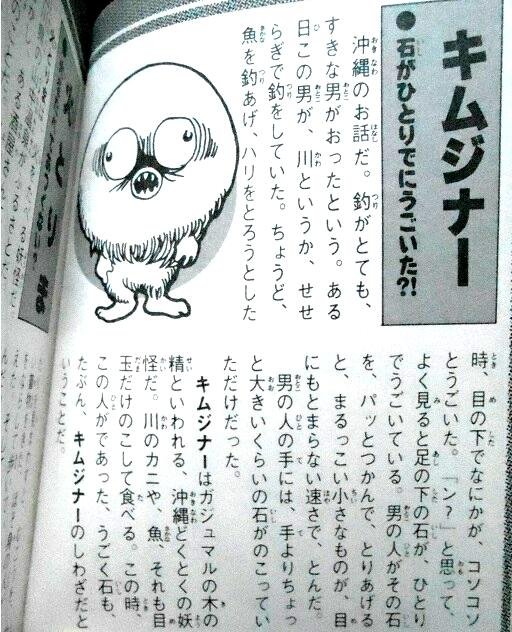 キムジナー
●石がひとりでにうごいた?!
沖縄のお話だ。釣がとても、
すきな男がおったという。ある
日この男が、川というか、せせ
らぎで釣をしていた。ちょうど、
魚を釣あげ、ハリをとろうとした
時、目の下でなにかが、コソコソ
とうごいた。「ン?」と思って、
よく見ると足の下の石が、ひとり
でうごいている。男の人がその石
を、パッとつかんで、とりあげる
と、まるっこい小さなものが、目
にもとまらない速さで、とんだ。
男の人の手には、手よりちょっ
と大きいくらいの石がのこってい
ただけだった。
キムジナーはガジュマルの木の
精といわれる、沖縄どくとくの妖
怪だ。川のカニや、魚、それも目
玉だけのこして食べる。この時、
この人がであった、うごく石も、
たぶん、キムジナーのしわざだと
いうことだ。